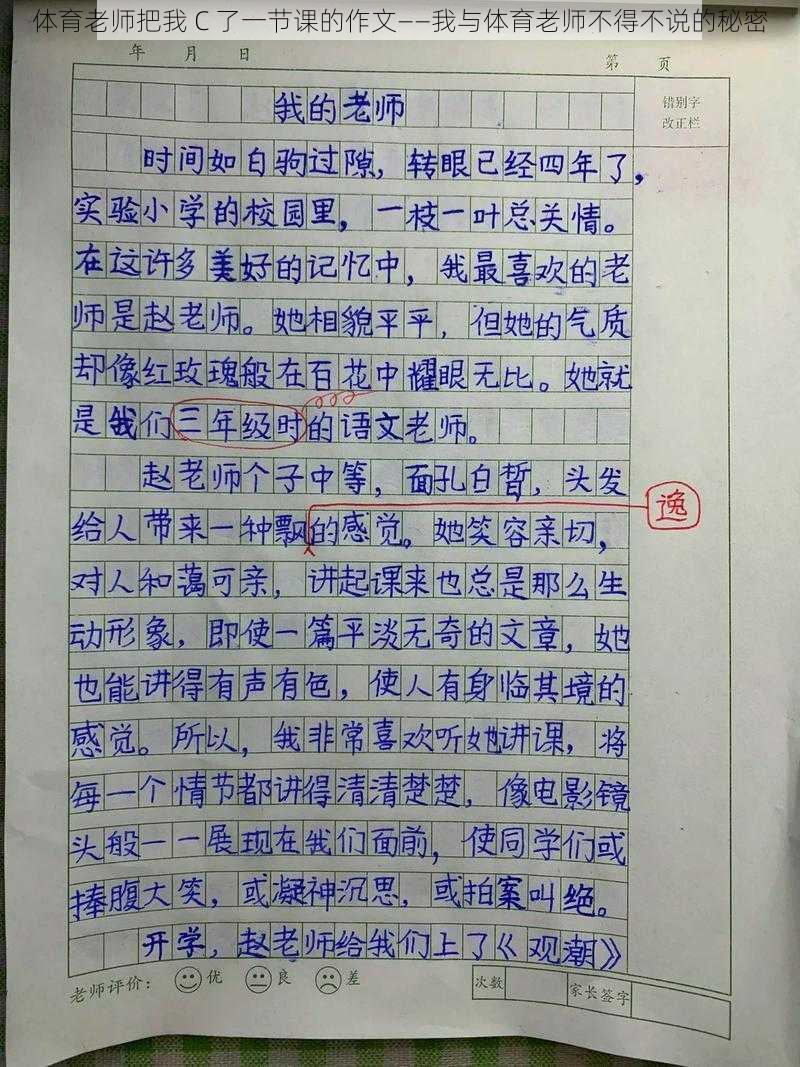 体育老师把我 C 了一节课的作文——我与体育老师不得不说的秘密
年 月 日
第 页
错别字
改正栏
我的老师
时间如白驹过隙，转眼已经四年了，
实验小学的校园里，一枝一叶总关情。
在这许多美好的记忆中，我最喜欢的老
师是赵老师。她相貌平平，但她的气质
却像红玫瑰般在百花中耀眼无比。她就
是我们三年级时的语文老师。
赵老师个子中等，面孔白皙，头发
给人带来一种飘的感觉。她笑容亲切，
逸
对人和蔼可亲，讲起课来也总是那么生
动形象，即使一篇平淡无奇的文章，她
也能讲得有声有色，使人有身临其境的
感觉。所以，我非常喜欢听她讲课，将
每一个情节都讲得清清楚楚，像电影镜
头般一一展现在我们面前，使同学们或
捧腹大笑，或凝神沉思，或拍案叫绝。
开学，赵老师给我们上了《观潮》
老师评价： 优 良 差
次数
家长签字